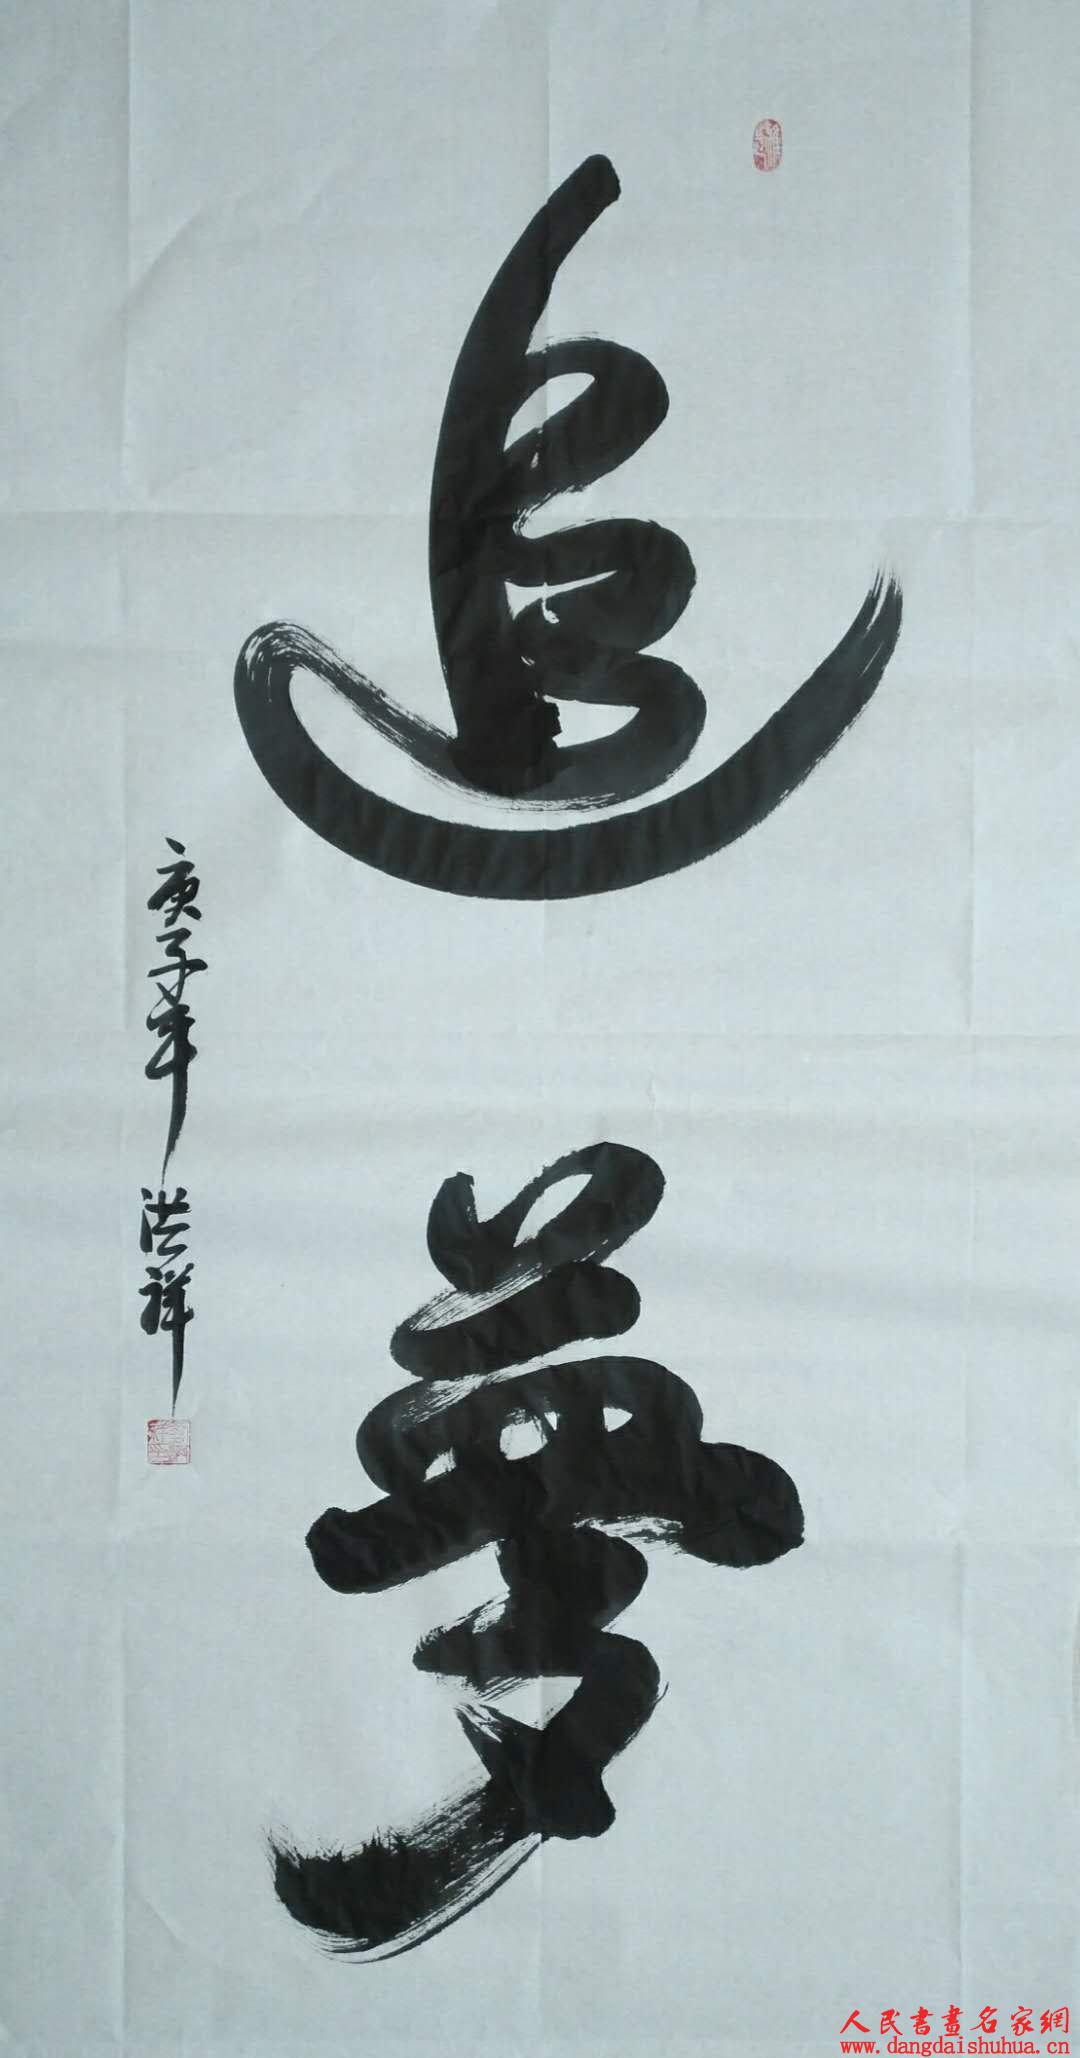 追夢
庚子年 洪祥
人民書畫名家網
www.dangdaishuhua.cn